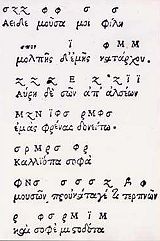 σ ζ ζ φ φ σ σ
Αειδε μουσα μοι φίλη
ϊ φ Μ Μ
μολπῆς δ' ἐμῆς κατάρχου
Ζ Ζ Ζ Ε Ζ Ζ ϊ ϊ
Αὔρη δὲ σῶν ἀπ' ἀλσέων
Μ Ζ Ν ϊ φ σ ρ Μ φ σ
ἐμὰς φρένας δονείτω
σ ρ Μ ρ σ φ ρ
Καλλιόπα σοφά
φ Ν σ σ σ σ φ
μουσῶν τερπνῶν
ρ φ σ ρ Μ ϊ Μ
καὶ σοφὲ μυστοδότα